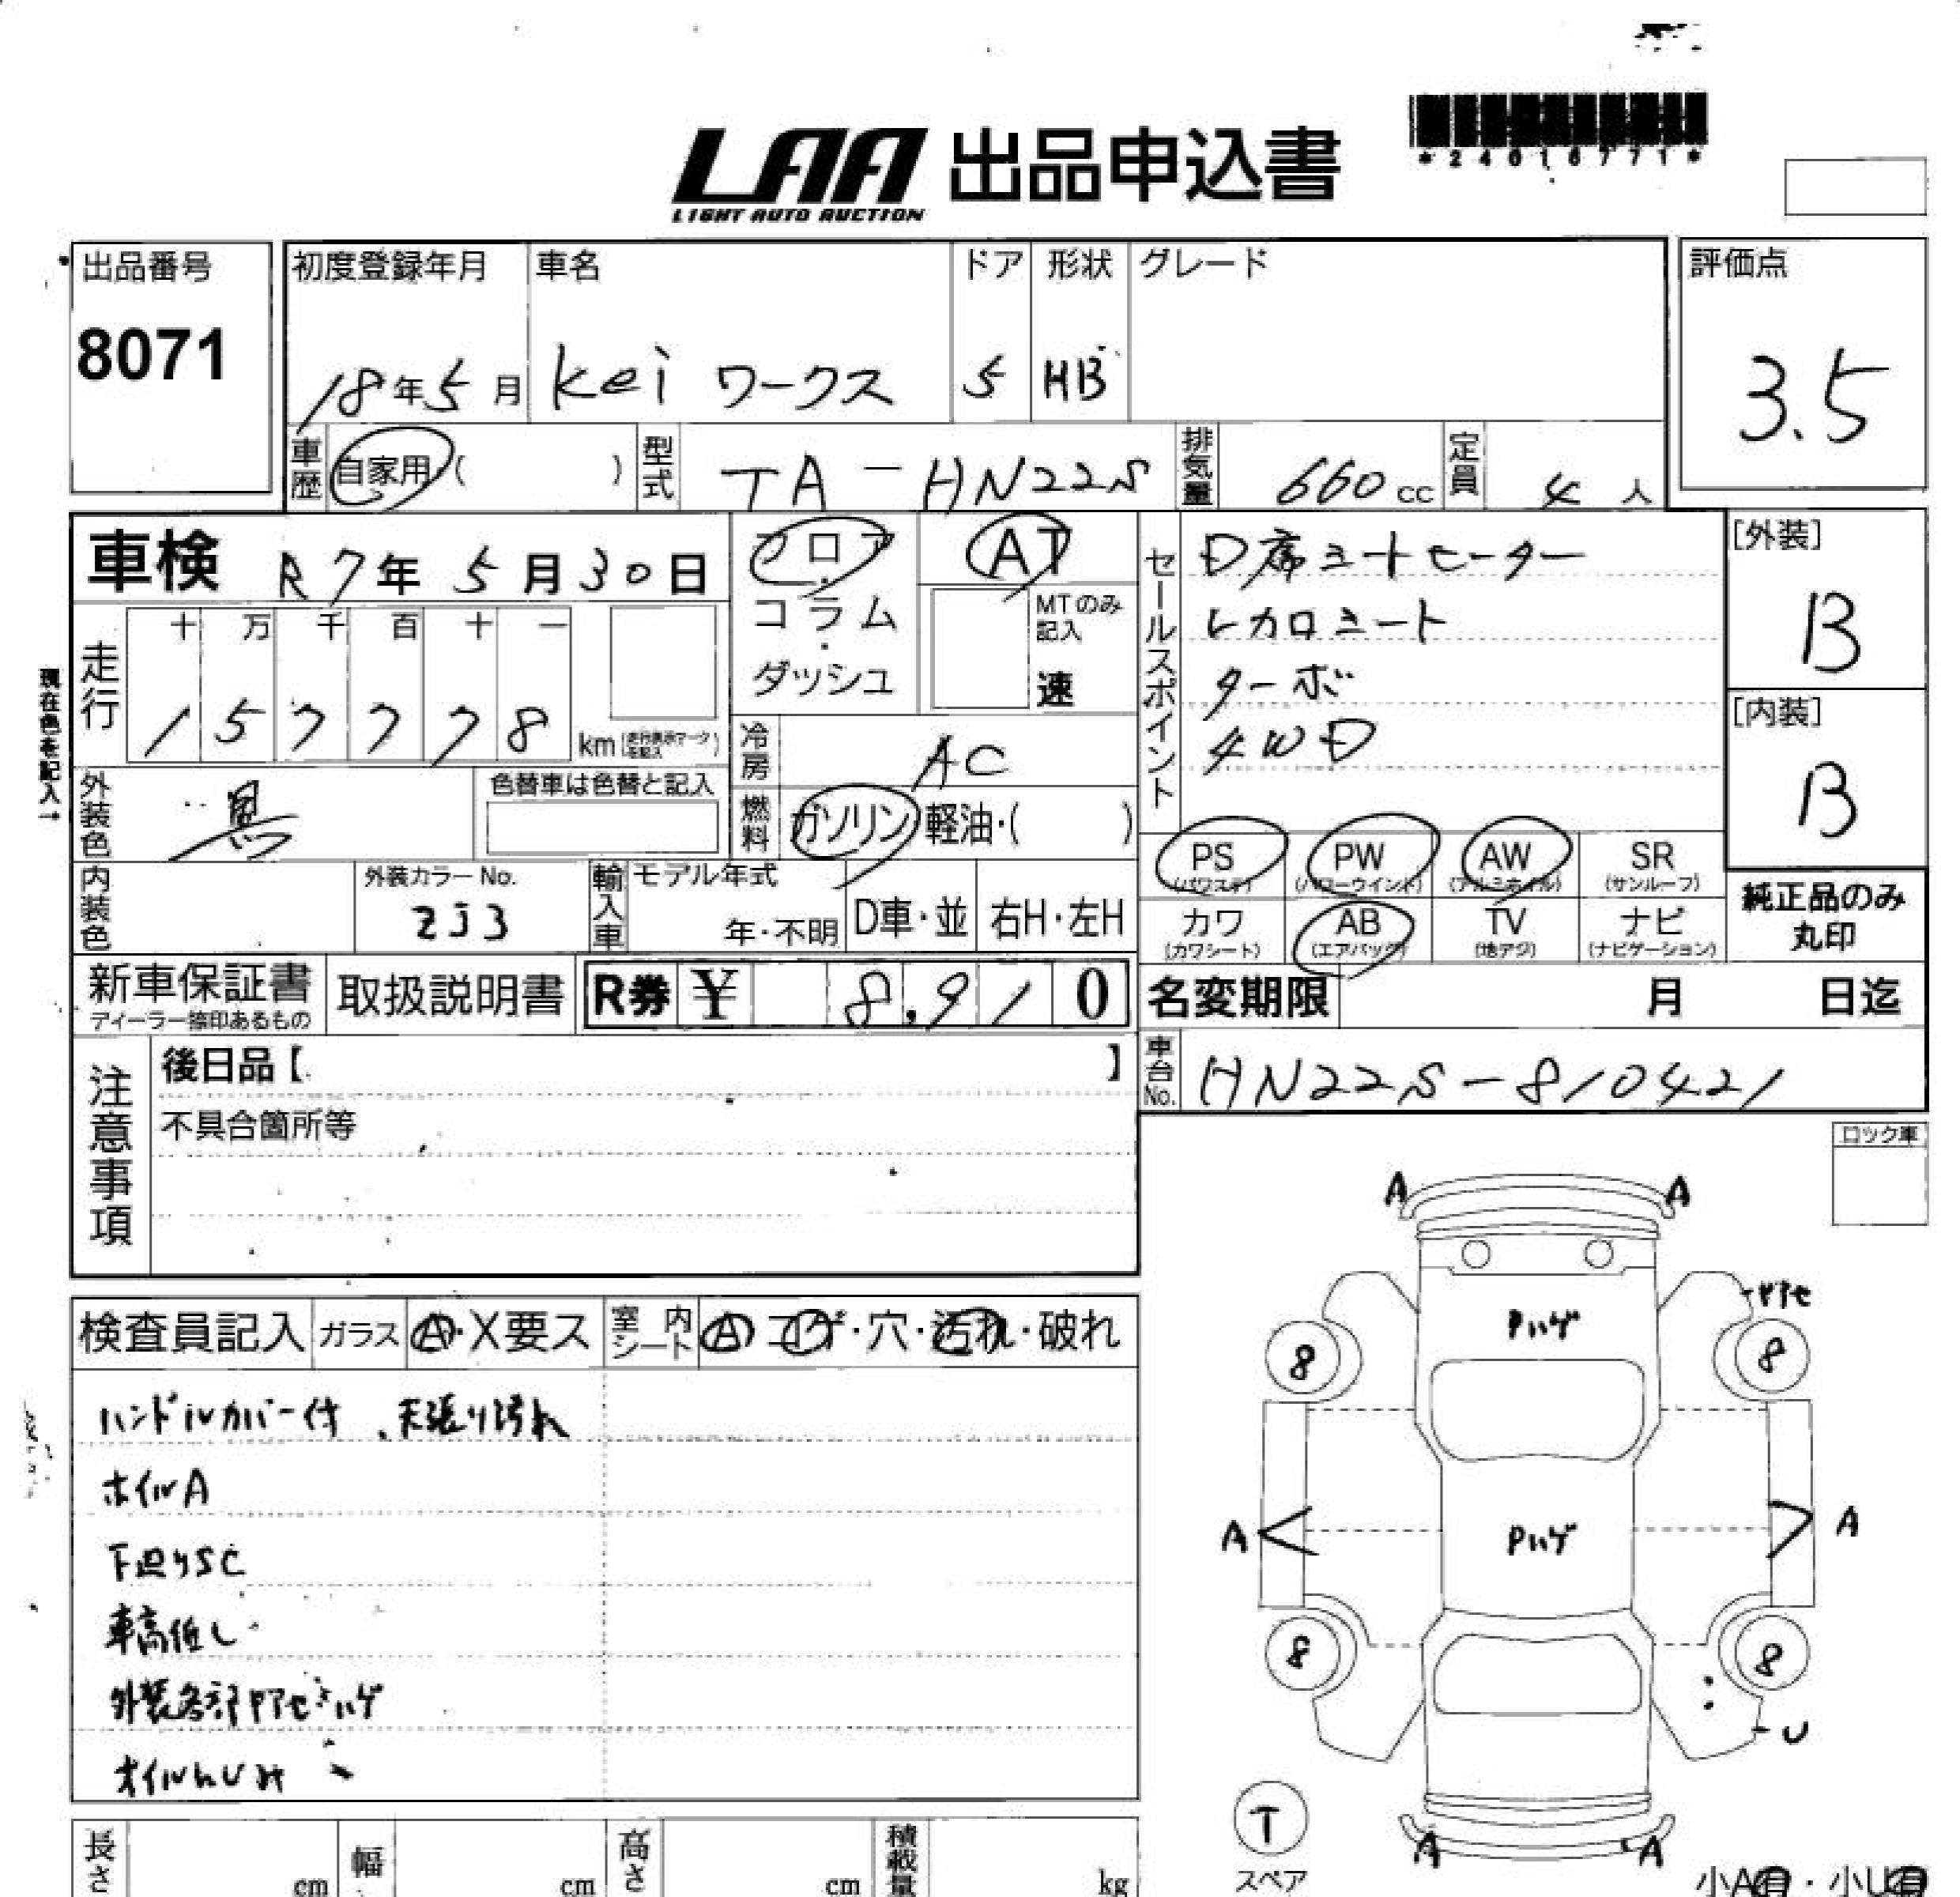 *24016771*
LAA 出品申込書
LIGHT AUTO AUCTION
出品番号
8071
初度登録年月
18年5月
車名
Kei ワークス
ドア
5
形状
HB
グレード
評価点
3.5
車歴
自家用( )
型式
TA-HN22S
排気量
660cc
定員
4人
車検 R7年5月30日
フロア・コラム・ダッシュ
AT
MTのみ記入
速
セールスポイント
D席シートヒーター
レカロシート
ターボ
4WD
[外装]
B
[内装]
B
現在色を記入→
走行
十 万 千 百 十 一
1 5 7 7 7 8 km
冷房
AC
外装色
黒
色替車は色替と記入
燃料
ガソリン・軽油・( )
PS (パワステ)
PW (パワーウインド)
AW (アルミホイル)
SR (サンルーフ)
カワ (カワシート)
AB (エアバッグ)
TV (地デジ)
ナビ (ナビゲーション)
純正品のみ丸印
内装色
外装カラーNo.
ZJ3
輸入車
モデル年式
年・不明
D車・並
右H・左H
新車保証書
ディーラー捺印あるもの
取扱説明書
R券 ¥ 8,910
名変期限 月 日迄
注意事項
後日品【 】
不具合箇所等
車台No.
HN22S-810421
ロック車
検査員記入
ガラス
A・X要ス
室内シート
A コゲ・穴・汚れ・破れ
ハンドルカバー付、天張り汚れ
ホイルA
下廻りSC
車高低し
外装各部ヤアセ、ハゲ
オイルにじみ
A A
Pハゲ
ヤアセ
8 8
A Pハゲ A
8 8
U
T
スペア
A A
小A有・小U有
長さ cm
幅 cm
高さ cm
積載量 kg